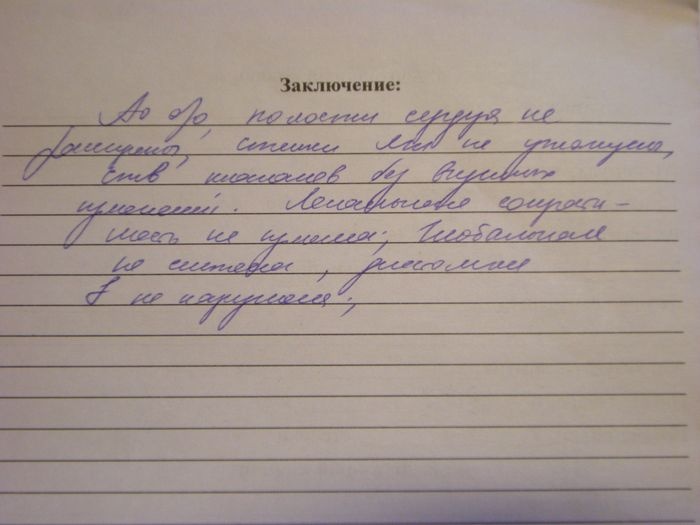 Заключение:
Ао б/о, полости сердца не
расширены, стенки ЛЖ не утолщены,
ств клапанов без видимых
изменений. Локальная сократи-
мость не изменена; Глобальная
не снижена, диастолич
f не нарушена;